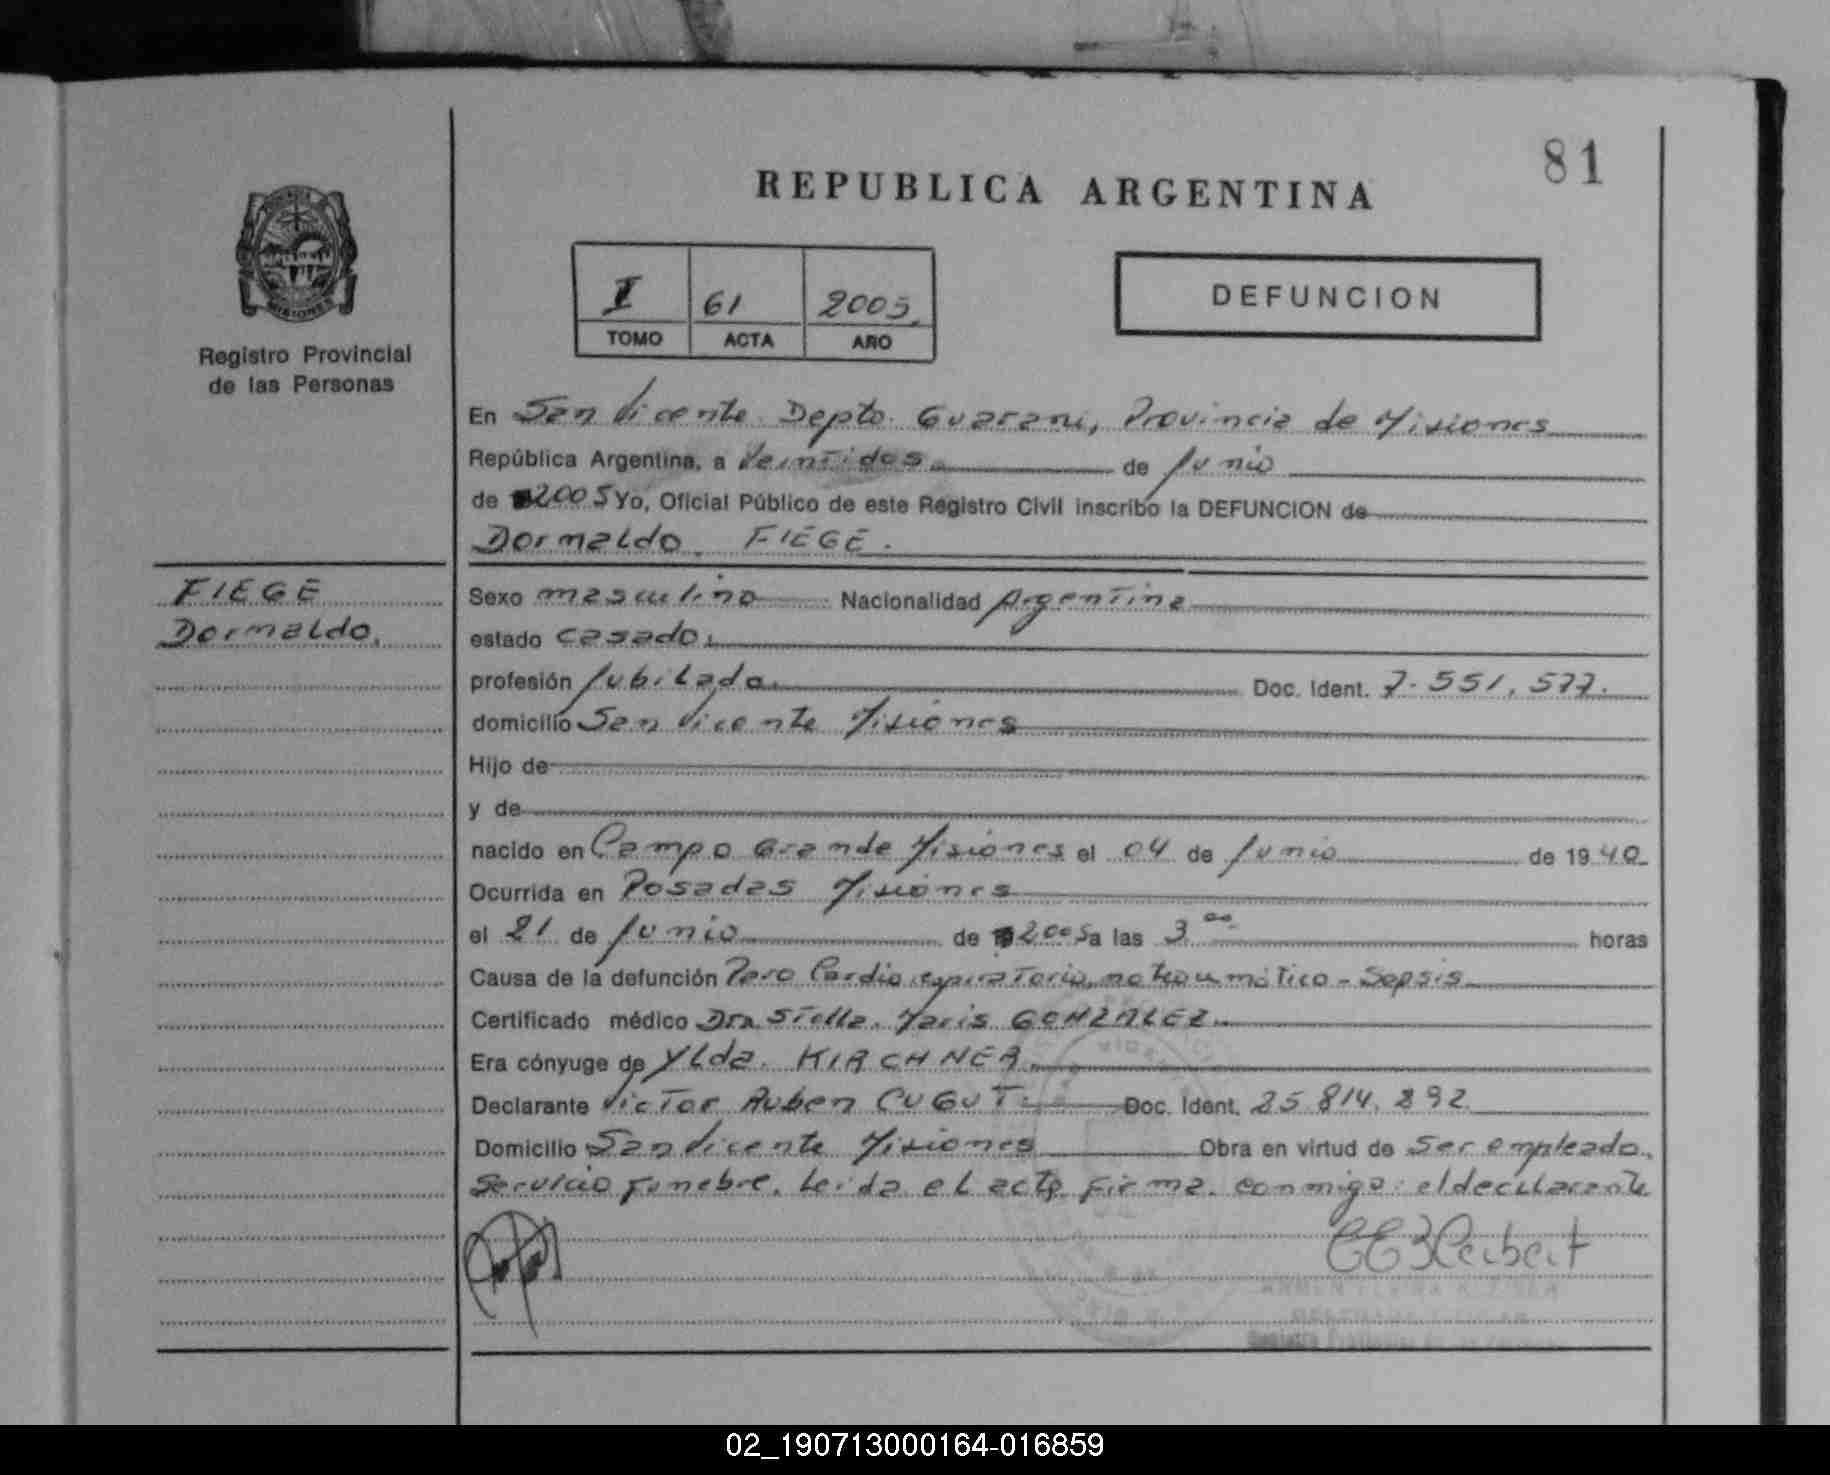 81
REPUBLICA ARGENTINA
I 61 2005
TOMO ACTA AÑO
DEFUNCION
MISIONES
Registro Provincial
de las Personas
En San Vicente Depto. Guarani, Provincia de Misiones
República Argentina, a Veintidos de Junio
de 2005 Yo, Oficial Público de este Registro Civil inscribo la DEFUNCION de
Dormaldo FIEGE.
FIEGE
Dormaldo.
Sexo masculino Nacionalidad Argentina
estado casado.
profesión Jubilado. Doc. Ident. 7.551.577.
domicilio San Vicente Misiones
Hijo de
y de
nacido en Campo Grande Misiones el 04 de Junio de 1940
Ocurrida en Posadas Misiones
el 21 de Junio de 2005 a las 3 00 horas
Causa de la defunción Paro Cardiorespiratorio, no traumático - Sepsis
Certificado médico Dra Stella Maris GONZALEZ.
Era cónyuge de Ylda KIRCHNER.
Declarante Victor Ruben CUGUT Doc. Ident. 25.814.892
Domicilio San Vicente Misiones Obra en virtud de Ser empleado
Servicio Funebre. Leida el acta firma conmigo: el declarante
02_190713000164-016859